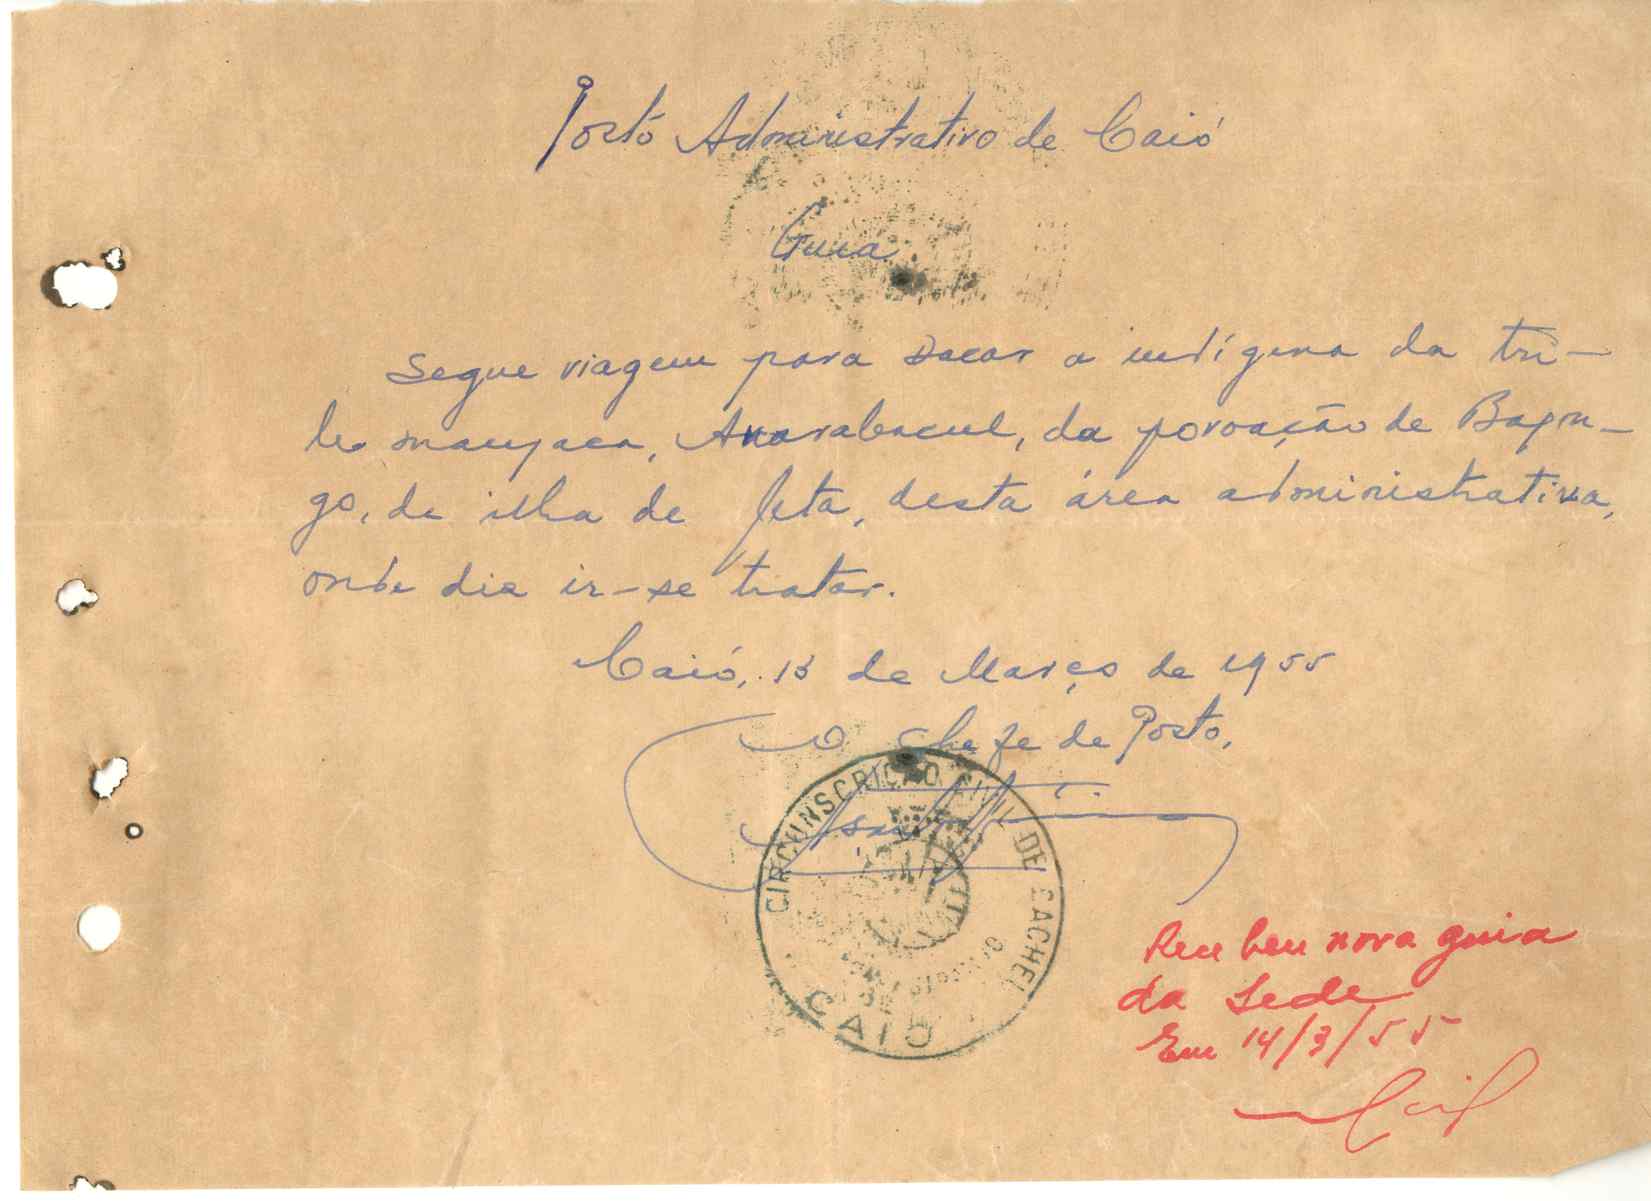 Posto Administrativo de Caió
Guia
Segue viagem para Dacar a indígena da tri-
bo manjaca, da povoação de
go, da ilha de Jeta, desta área administrativa,
onde diz ir-se tratar.
Caió, 13 de Março de 1955
O Chefe de Posto,
CIRCUNSCRIÇÃO CIVIL DE CACHEU
CAIÓ
Recebeu nova guia
da Sede
Em 14/3/55